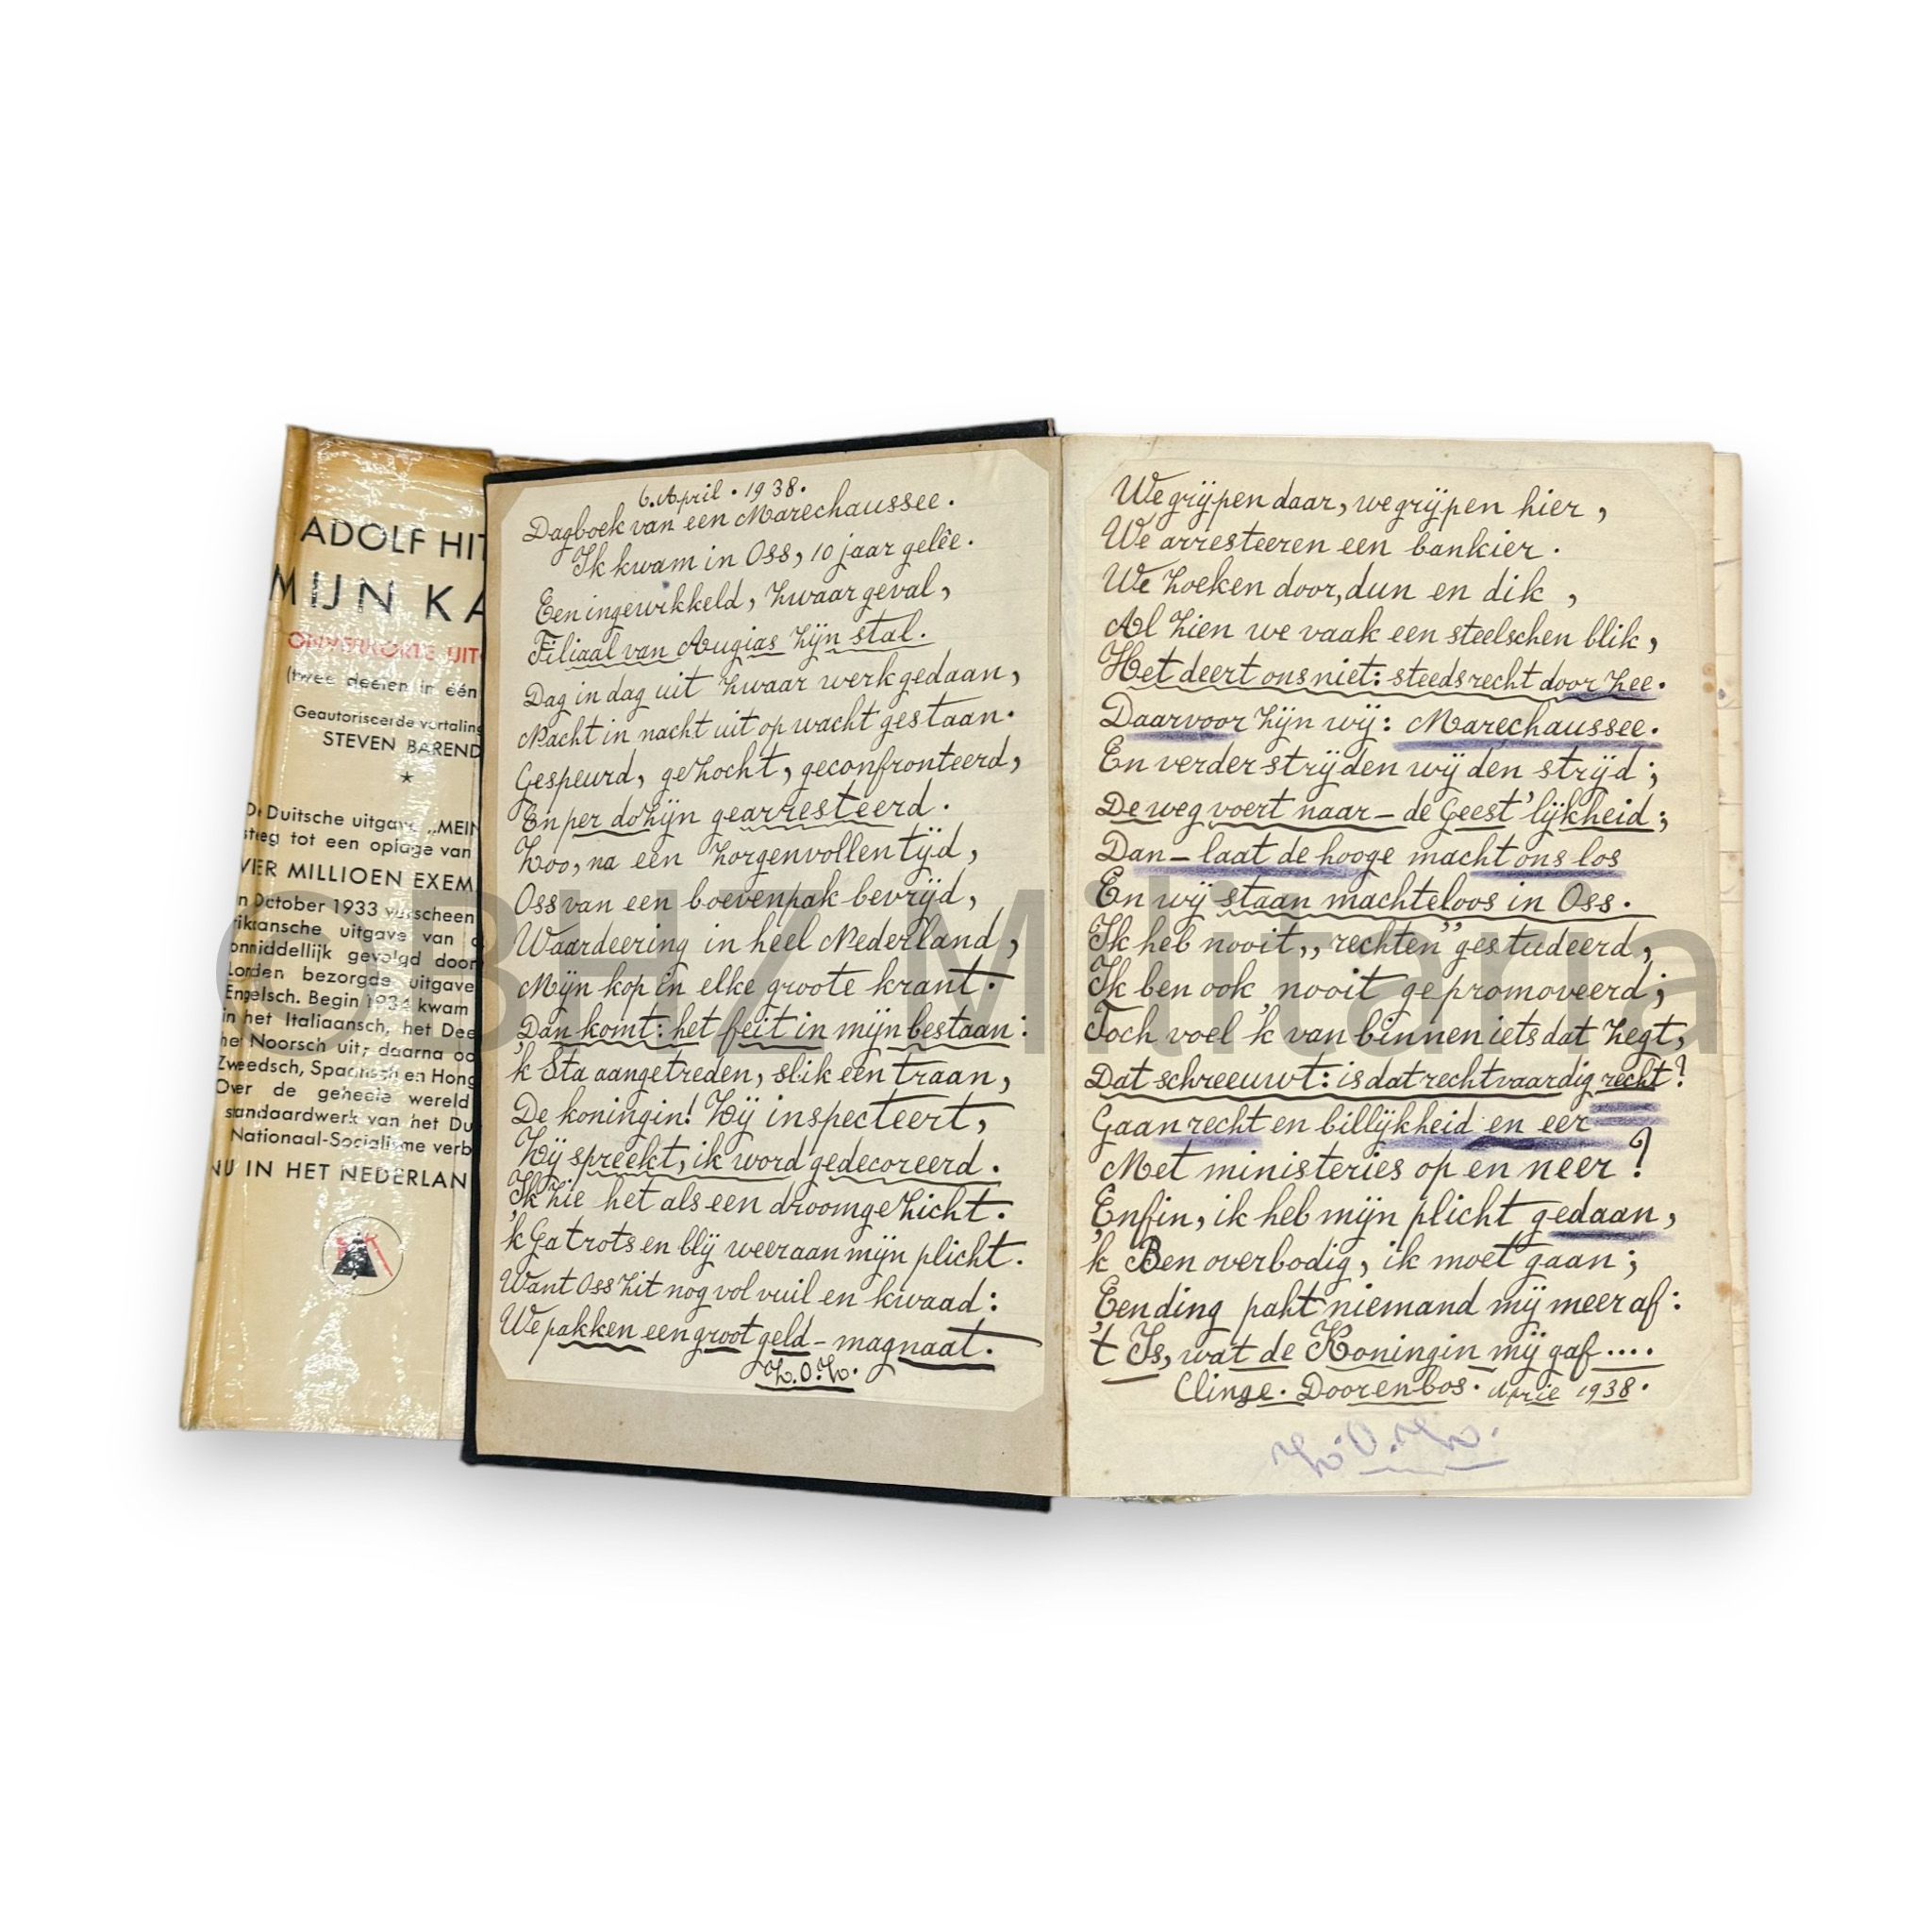 ADOLF HIT
MIJN KA
ONVERKORTE UIT
(twee deelen in één
Geautoriseerde vertaling
STEVEN BAREND
*
De Duitsche uitgave „MEIN
steeg tot een oplage van
VIER MILLIOEN EXEM
In October 1933 verscheen
rikaansche uitgave van
onmiddellijk gevolgd door
Londen bezorgde uitgave
Engelsch. Begin 1934 kwam
in het Italiaansch, het Dee
het Noorsch uit; daarna oo
Zweedsch, Spaansch en Hong
Over de geheele wereld
standaardwerk van het Du
Nationaal-Socialisme verb
NU IN HET NEDERLAN
6. April. 1938.
Dagboek van een Marechaussee.
Ik kwam in Oss, 10 jaar gelêe.
Een ingewikkeld, zwaar geval,
Filiaal van Augias zijn stal.
Dag in dag uit zwaar werk gedaan,
Nacht in nacht uit op wacht gestaan.
Gespeurd, gezocht, geconfronteerd,
En per dozijn gearresteerd.
Zoo, na een zorgenvollen tijd,
Oss van een boevenpak bevrijd,
Waardeering in heel Nederland,
Mijn kop in elke groote krant.
Dan komt: het feit in mijn bestaan:
'k Sta aangetreden, slik een traan,
De koningin! Zij inspecteert,
Zij spreekt, ik word gedecoreerd.
Ik zie het als een droomgezicht.
'k Ga trots en blij weer aan mijn plicht.
Want Oss zit nog vol vuil en kwaad:
We pakken een groot geld-magnaat.
Z.O.Z.
We grijpen daar, we grijpen hier,
We arresteeren een bankier.
We zoeken door, dun en dik,
Al zien we vaak een steelschen blik,
Het deert ons niet: steeds recht door zee.
Daarvoor zijn wij: Marechaussee.
En verder strijden wij den strijd;
De weg voert naar – de Geest'lijkheid;
Dan – laat de hooge macht ons los
En wij staan machteloos in Oss.
Ik heb nooit „rechten" gestudeerd,
Ik ben ook nooit gepromoveerd;
Toch voel 'k van binnen iets dat zegt,
Dat schreeuwt: is dat rechtvaardig recht?
Gaan recht en billijkheid en eer
Met ministeries op en neer?
Enfin, ik heb mijn plicht gedaan,
'k Ben overbodig, ik moet gaan;
Een ding pakt niemand mij meer af:
't Is, wat de Koningin mij gaf....
Clinge. Doorenbos. Aprie 1938.
Z.O.Z.
©BHZ Militaria